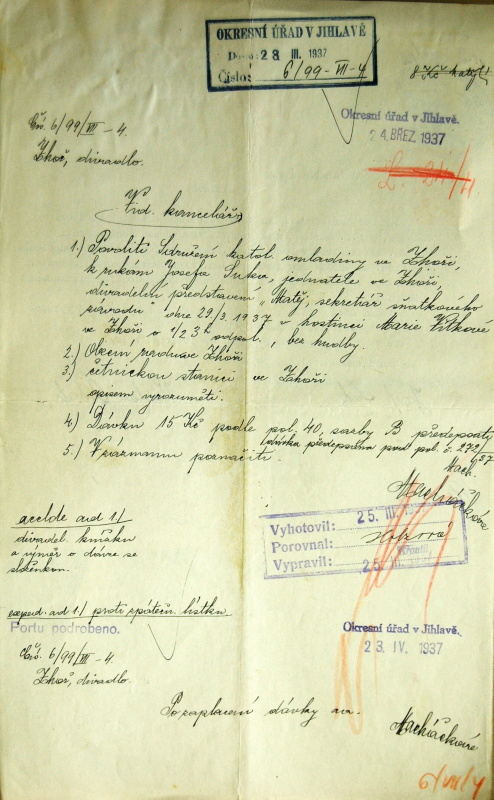 OKRESNÍ ÚŘAD V JIHLAVĚ
28 III. 1937
Číslo: 6/99-VII-4
8 Kč
Okresní úřad v Jihlavě.
24. BŘEZ. 1937
Čís. 6/99/VII-4.
Zhoř, divadlo.
Vid. kancelář
1.) Povoliti Sdružení katol. omladiny ve Zhoři,
k rukám Josefa, jednatele ve Zhoři,
divadelní představení „Matěj, sekretář sňatkového
závodu dne 29/3. 1937 v hostinci Marie Vítkové
ve Zhoři o 1/2 3 h odpol., bez hudby.
2.) Obecní Zhoři
3.) četnickou stanici ve Zhoři
opisem vyrozuměti.
4.) Dávku 15 Kč podle pol. 40, sazby B předepsati
(dávka předepsána pod pol. č. 272/37
Mach.
5.) V záznamu poznačiti.
Macháčková
ad 1/
divadel. knížku
a výměr o dávce se
složenkou.
Vyhotovil: 25. III.
Porovnal:
Vypravil: 25 III. 1937
exped. ad 1/ proti zpáteč. lístku
Portu podrobeno.
Okresní úřad v Jihlavě.
23. IV. 1937
Čís. 6/99/VII-4.
Zhoř, divadlo.
Po zaplacení dávky a/a.
Macháčková
6/VII/4